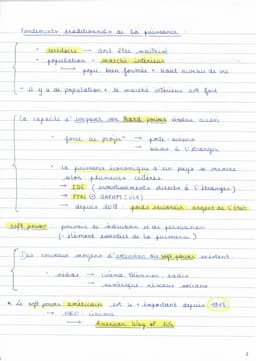 Fondements traditionnels de la puissance :
• territoire → doit être maîtrisé
• population + marché intérieur
→ popu bien formée + haut niveau de vie
• il y a de population + le marché intérieur est fort
La capacité d'imposer son hard power évolue aussi
• force de projet° → porte-avions
→ bases à l'étranger
• la puissance économique d'un pays se mesure
selon plusieurs critères
→ IDE (investissements directs à l'étranger)
→ FTN @ GAFAM (USA)
→ depuis 2018 fonds souverain argent de l'État
soft power pouvoir de séduction et de persuasion
(= élément essentiel de la puissance)
Des nouveaux moyens d'extension du soft power existent
• médias → cinéma, télévision, radio
→ numérique, réseaux sociaux
* Le soft power américain est le + important depuis 1945
→ cinéma
→ American Way of Life
2